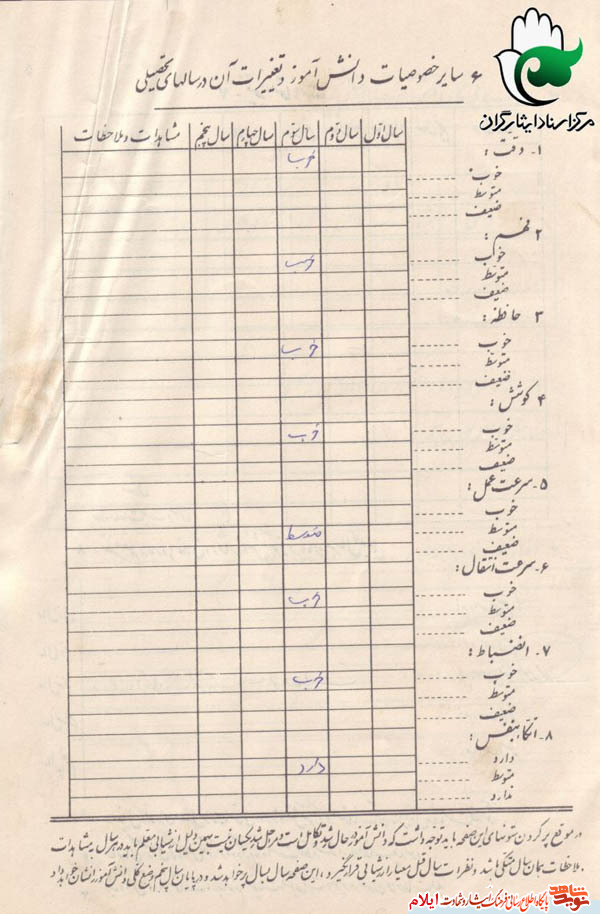 مرکز اسناد ایثارگران
۶ سایر خصوصیات دانش آموز و تغییرات آن در سالهای تحصیلی
سال اول سال دوم سال سوم سال چهارم سال پنجم مشاهدات و ملاحظات
۱- دقت :
خوب
خوب
متوسط
ضعیف
۲ فهم :
خوب
خوب
متوسط
ضعیف
۳ حافظه :
خوب
خوب
متوسط
ضعیف
۴ کوشش :
خوب
خوب
متوسط
ضعیف
۵- سرعت عمل :
خوب
متوسط
متوسط
ضعیف
۶- سرعت انتقال :
خوب
خوب
متوسط
ضعیف
۷- انضباط :
خوب
خوب
متوسط
ضعیف
۸- اتکاء بنفس :
دارد
دارد
متوسط
ندارد
در موقع پر کردن ستونهای این صفحه باید توجه داشت که دانش آموز در حال رشد و تکامل است و مراحل رشد یکسان نیست بهمین دلیل ارزشیابی معلم باید در هر سال بر مشاهدات
ملاحظات همان سال متکی باشد و نظرات سال قبل معیار ارزشیابی قرار نگیرد ، این صفحه سال بسال پر خواهد شد و در پایان سال پنجم وضع کلی دانش آموز را نشان خواهد داد
نوید شاهد پایگاه اطلاع رسانی فرهنگ ایثار و شهادت ایلام